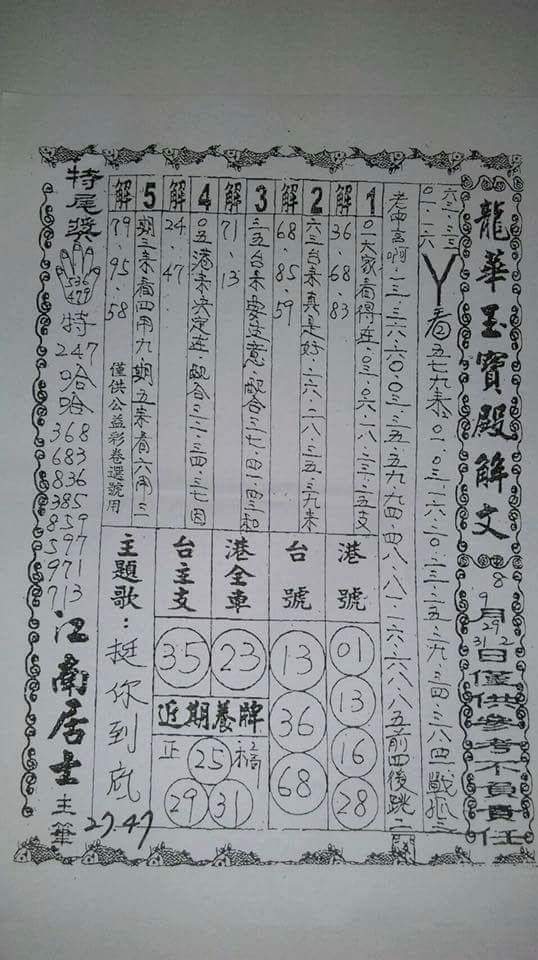 龍華玉寶殿解文
8 9月 29 31.2 日僅供參考不負責任
六三.三三
０一.一六
丫看五七九來.0一.0三.一六.二0.二三.二五.二九.三四.三八四一戰抓三
老中言啊.一三.三六.六0.0三.三五.五九九四.四八.八一.一六.六八.八五前四後跳二
1解
0一大家看得.0三.0六.一八.二三.二五支
36.68.83
2解
六三台來真是好.一六.二八.三五.三九來
68 85 59
3解
三五台來要注意.配合三七.四一.四三和
71.13
4解
0五港來決定.配合三二.三四.三七.因
24.47
5解
期三來看四用九期五來看六用三
79.95.58
僅供公益彩卷選號用
港號
01
13
16
28
台號
13
36
68
港全車
23
台主支
35
近期養牌
正
25
29
31
主題歌：挺你到底
27.47
特尾獎
536
479
特
247
哈
哈
368
683
836
385
859
597
971
713
江南居士主筆